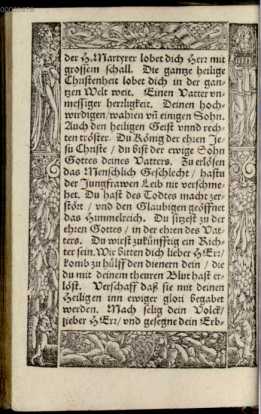 der H. Martyrer lobet dich Herr mit
grossem schall. Die gantze heilige
Christenheit lobet dich in der gan-
tzen Welt weit. Einen Vatter vn-
messiger herrligkeit. Deinen hoch-
wirdigen/wahren vñ einigen Sohn.
Auch den heiligen Geist vnnd rech-
ten tröster. Du König der ehren Je-
su Christe / du bist der ewige Sohn
Gottes deines Vatters. Zu erlösen
das Menschlich Geschlecht / hastu
der Jungfrawen Leib nit verschme-
het. Du hast des Todtes macht zer-
stört / vnd den Glaubigen geöffnet
das Himmelreich. Du sitzest zu der
ehren Gottes / in der ehren des Vat-
ters. Du wirst zukünfftig ein Rich-
ter sein. Wir bitten dich lieber HErr/
komb zu hülff den dienern dein / die
du mit deinem theuren Blut hast er-
löst. Verschaff daß sie mit deinen
Heiligen inn ewiger glori begabet
werden. Mach selig dein Volck/
lieber HErr/ vnd gesegne dein Erb-